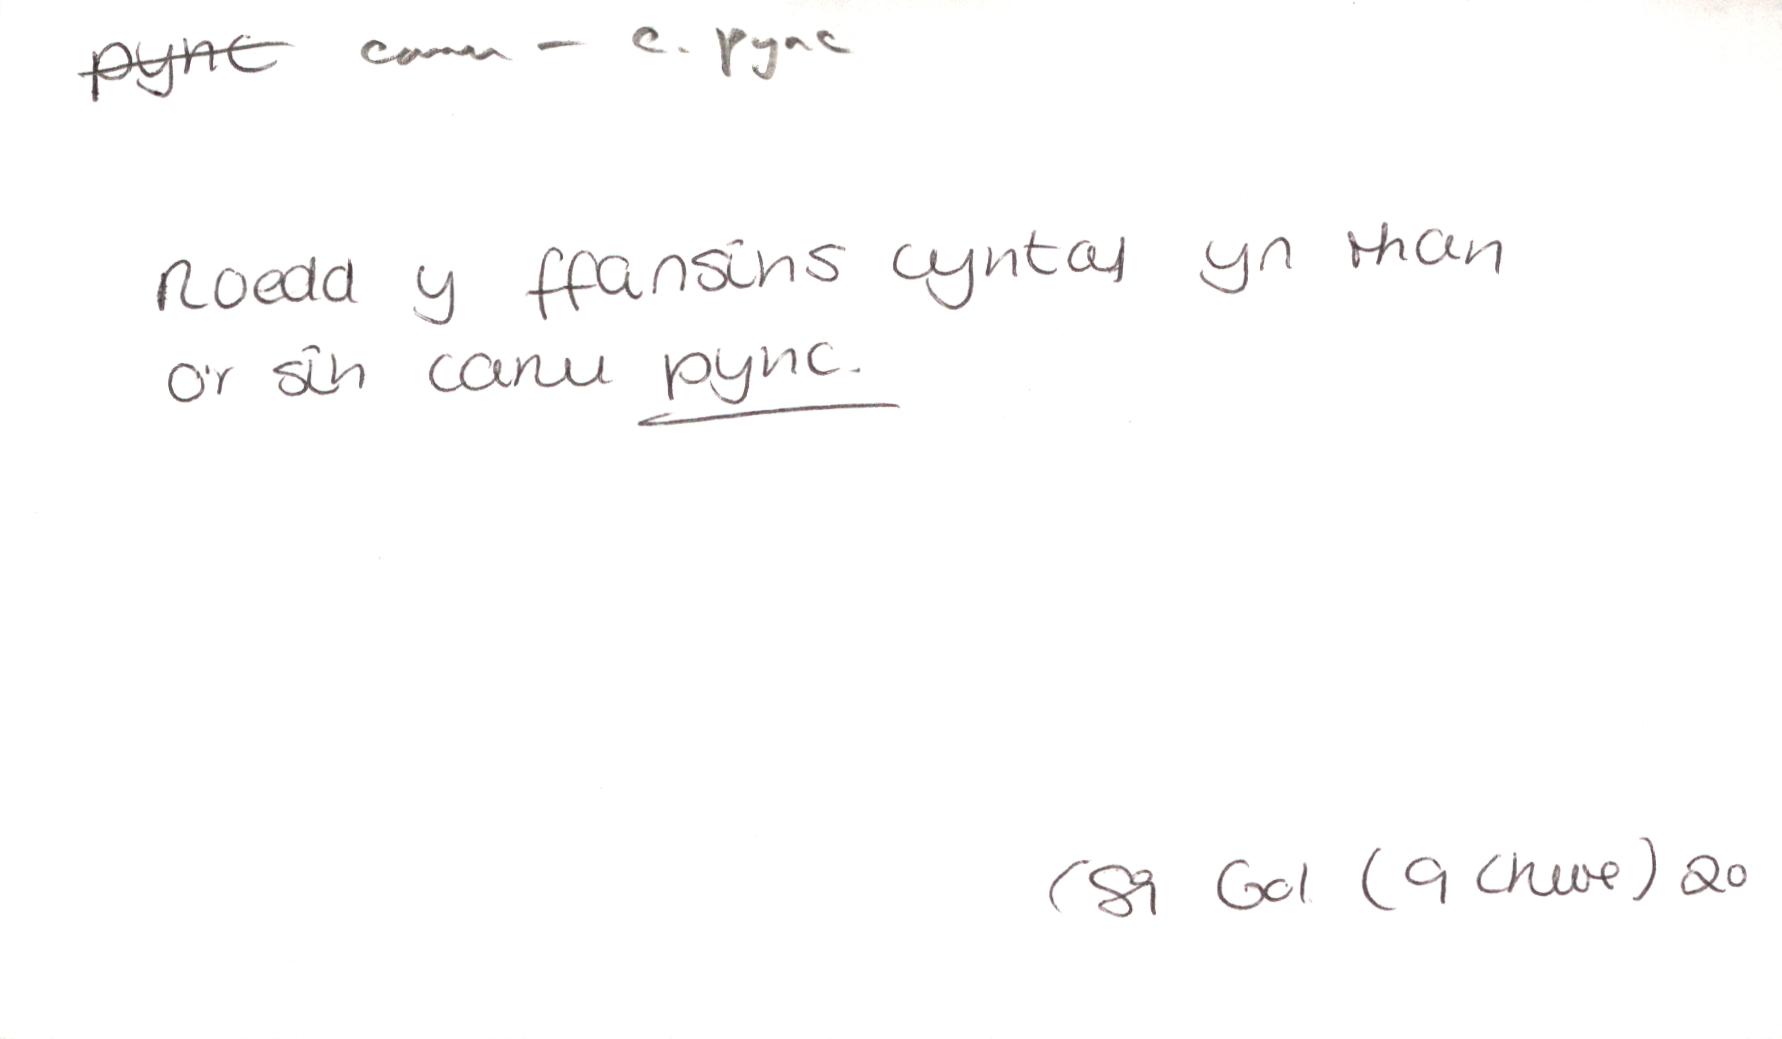 pync canu - c. pync
Roedd y ffansîns cyntaf yn rhan
o'r sîn canu pync.
(89 Gol (9 Chwe) 20